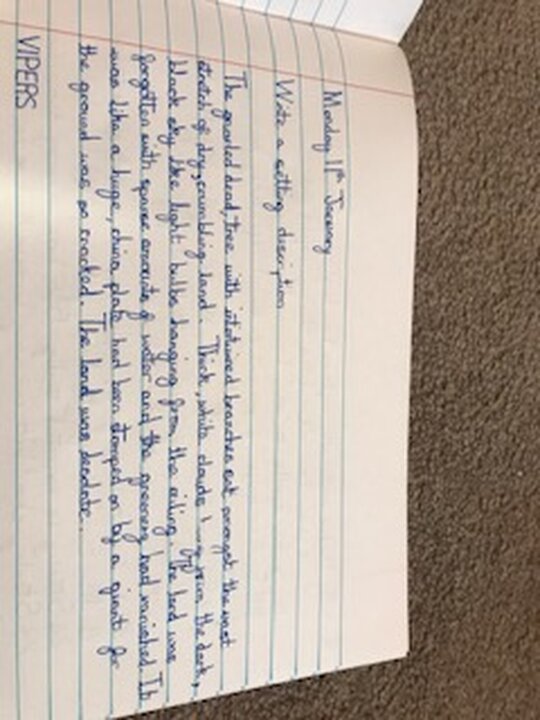 Monday 11th January
Write a setting description
The gnarled dead, tree with intertwined branches sat amongst the vast
stretch of dry, crumbling land. Thick, white clouds hung from the dark,
black sky like light bulbs hanging from the ceiling. The land was
forgotten with sparse amounts of water and the greenery had vanished. It
was like a huge, china plate had been stomped on by a giant for
the ground was so cracked. The land was desolate.
VIPERS